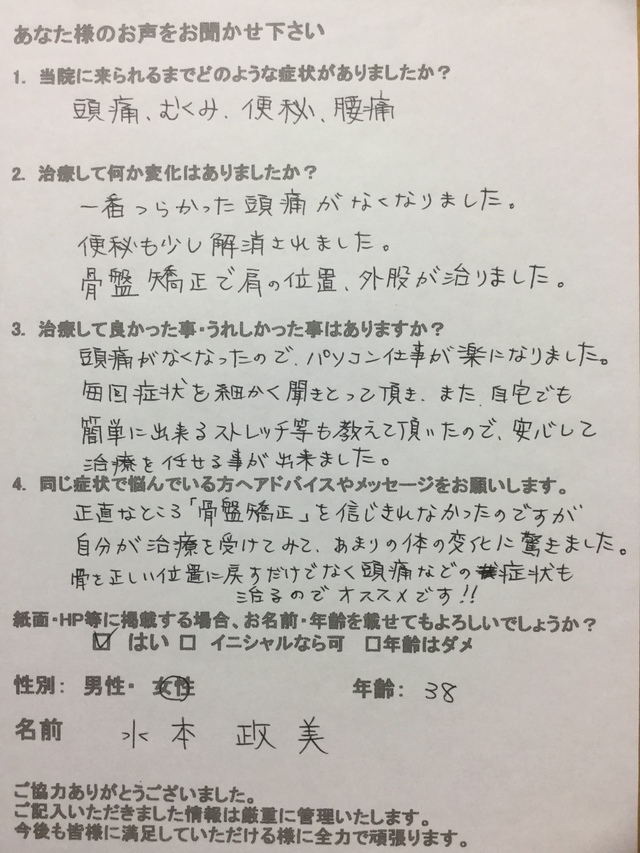 あなた様のお声をお聞かせ下さい
1. 当院に来られるまでどのような症状がありましたか？
頭痛、むくみ、便秘、腰痛
2. 治療して何か変化はありましたか？
一番つらかった頭痛がなくなりました。
便秘も少し解消されました。
骨盤矯正で肩の位置、外股が治りました。
3. 治療して良かった事・うれしかった事はありますか？
頭痛がなくなったので、パソコン仕事が楽になりました。
毎回症状を細かく聞きとって頂き、また、自宅でも
簡単に出来るストレッチ等も教えて頂いたので、安心して
治療を任せる事が出来ました。
4. 同じ症状で悩んでいる方へアドバイスやメッセージをお願いします。
正直なところ「骨盤矯正」を信じきれなかったのですが
自分が治療を受けてみて、あまりの体の変化に驚きました。
骨を正しい位置に戻すだけでなく頭痛などの症状も
治るのでオススメです!!
紙面・HP等に掲載する場合、お名前・年齢を載せてもよろしいでしょうか？
☑ はい □ イニシャルなら可 □年齢はダメ
性別： 男性・ 女性 年齢： 38
名前 水本 政美
ご協力ありがとうございました。
ご記入いただきました情報は厳重に管理いたします。
今後も皆様に満足していただける様に全力で頑張ります。